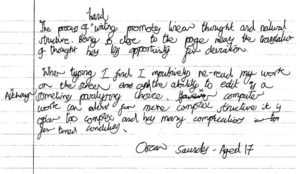 hand
The process of writing promotes linear thought and natural
structure. Being so close to the page nearly the translation
of thought has less opportunity for deviation.
When typing I find I repulsively re-read my work
on the screen and the ability to edit is a
Although sometimes paralysing choice. computer
work can allow for more complex structure it is
often too complex and has many complications
for timed conditions.
Oscar Saunders - Aged 17